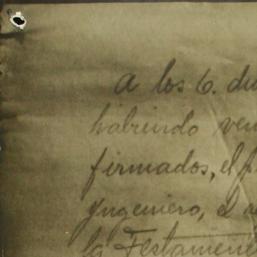 A los 6. du
habiendo ven
firmados, el p
Yngeniero, D
la Testament